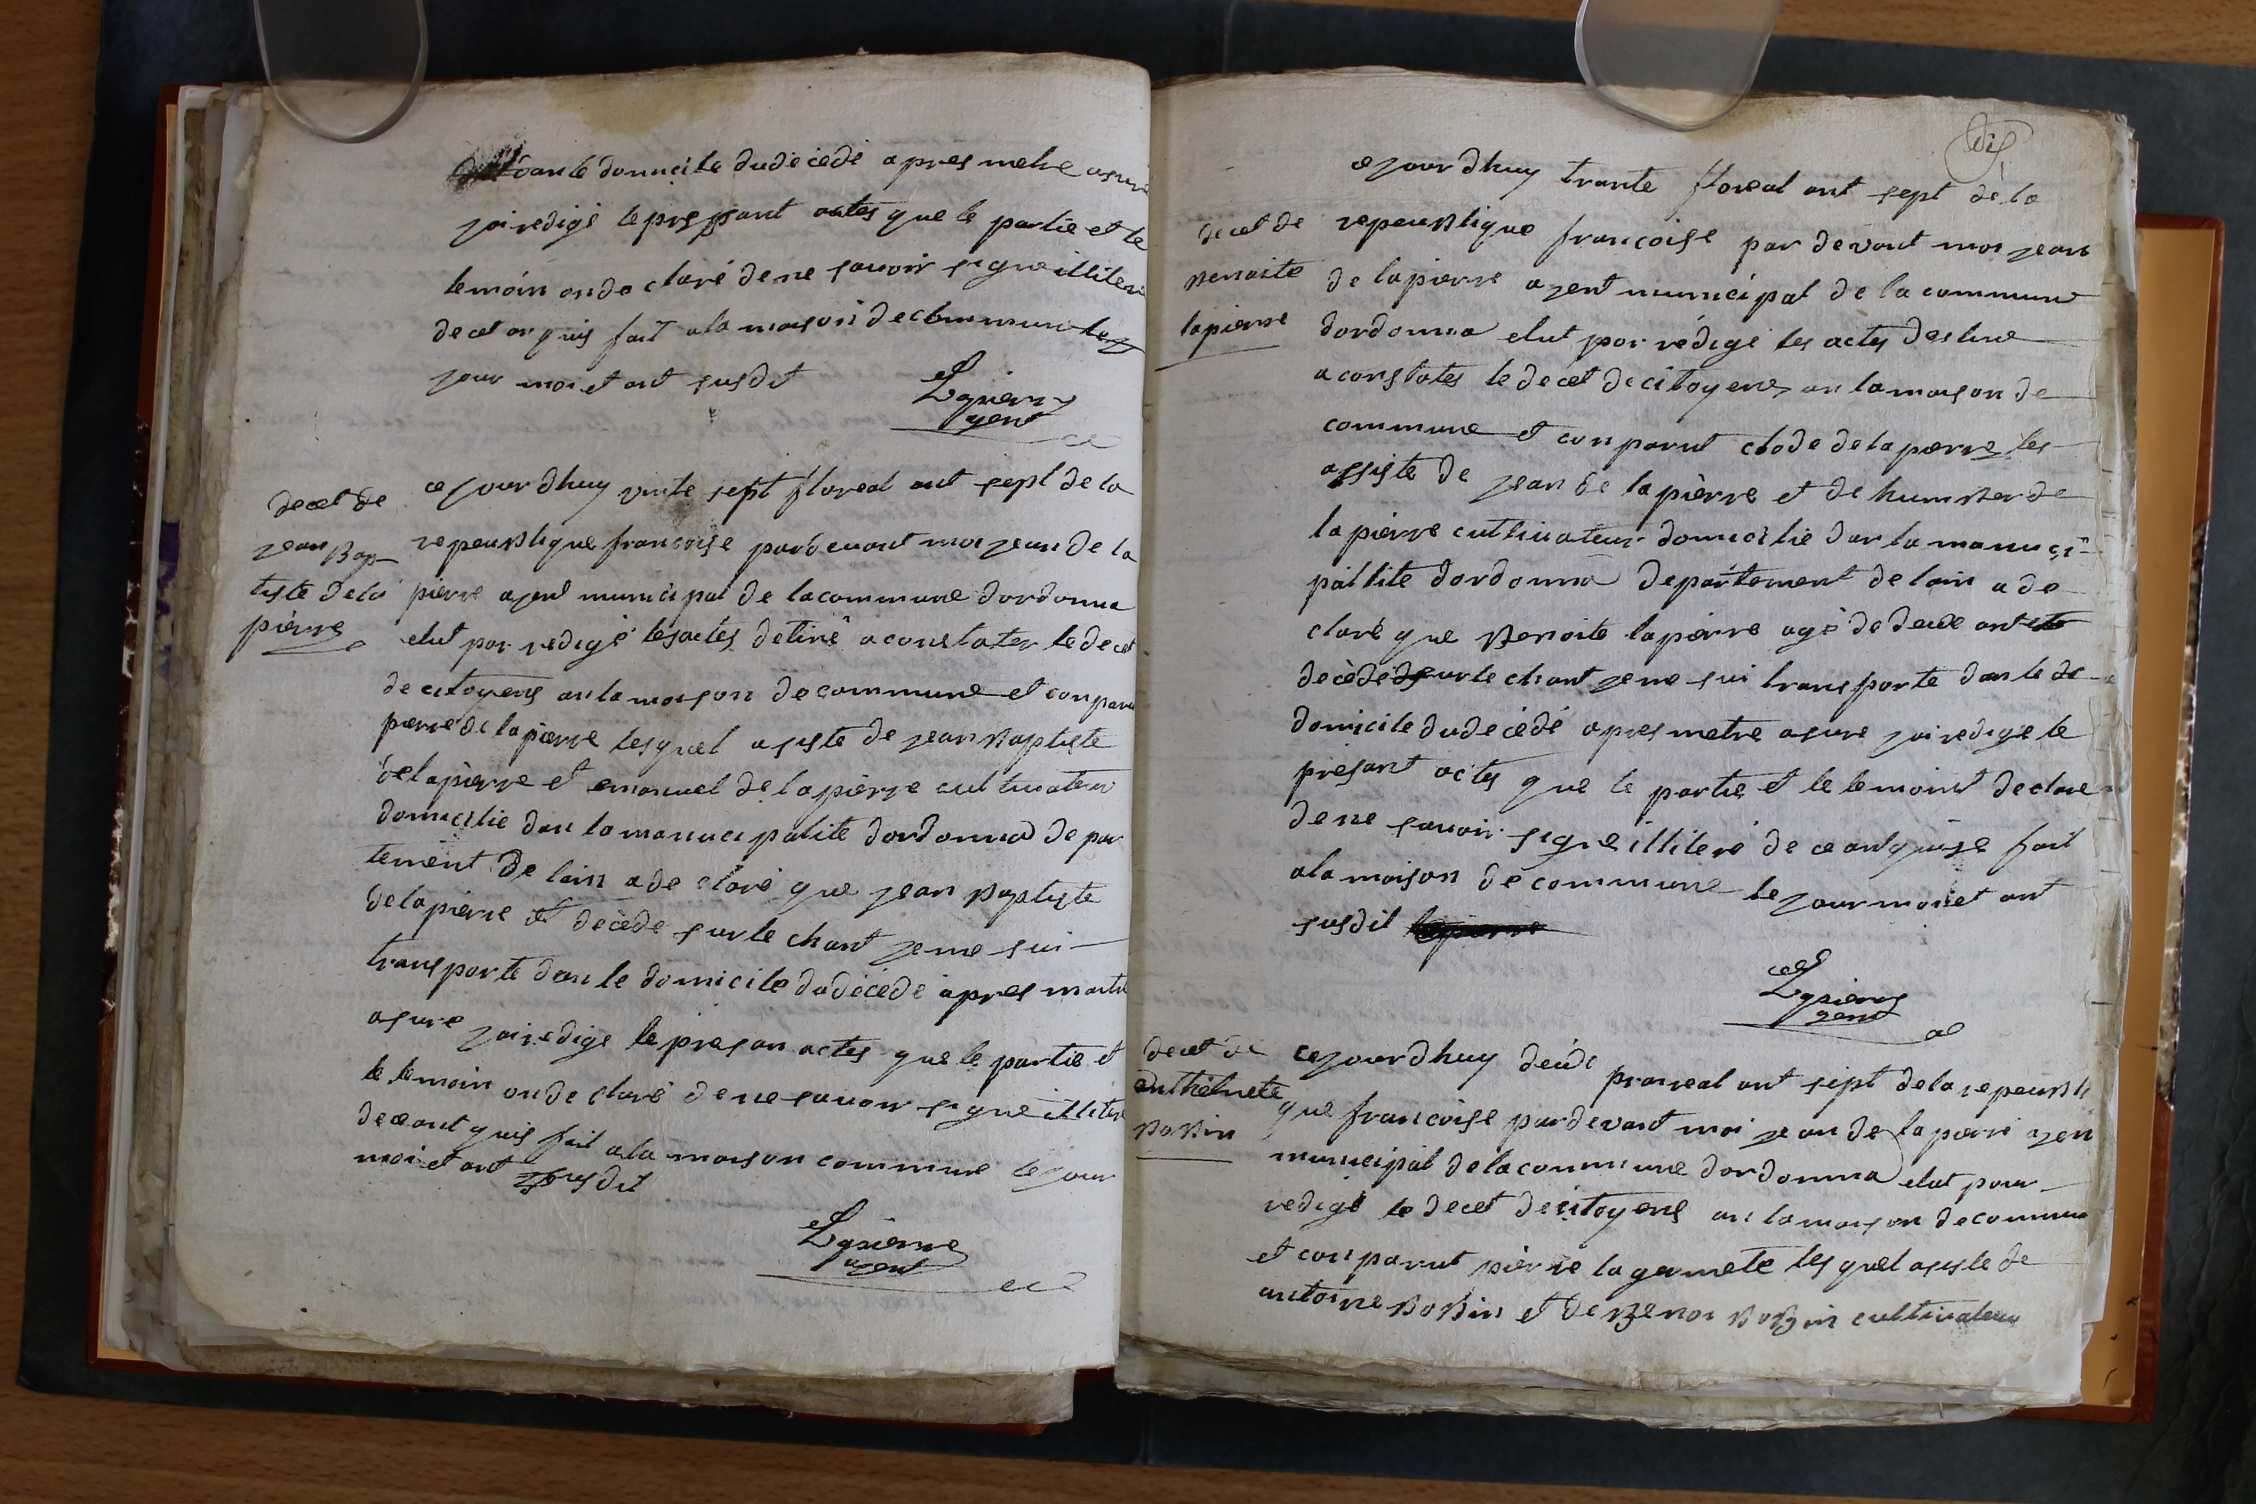 dan le domicile du décédé apres metre asuré
jai redigé le pressant actes que le partie et le
temóin on declaré de ne savoir signe illiteré
de cet anquis fait a la maison de commune le
jour moi et ant susdit
Lapierre
agent
decet de
jean Bap
tiste dela
pierre
ce jourdhuy vinte sept floreal ant sept de la
repeublique francoise pardevant moi jean de la
pierre agent municipal de la commune dordonna
elut por redigé les actes detiné a constater le decet
de citoyens an la maison de commune et conparu
pierre de lapierre lesquel asiste de jean Baptiste
delapierre et emanuel de lapierre cultivateur
domicilie dan la manucipalite dordonna depar
tement de lain a declaré que jean Baptiste
delapierre et décédé sur le chant je me sui
transporte dan le domicile du décédé apres metre
asure jai redige le presan actes que le partie et
le temoin on declaré de ne savoir signe illiteré
de ce ant quis fait a la maison commune le jour
moi et ant susdit
Lapierre
agent
dix
decet de
Benoite
lapierre
ce jourdhuy trante floreal ant sept de la
repeublique francoise par devant moi jean
de lapierre agent municipal de la commune
dordonna elut por rédigé les actes destine
a constates le decet de citoyens an la maison de
commune et conparut clode de lapierre les
assiste de jean de lapièrre et de humber de
lapièrre cultivateur domicilie dan la manuci=
pallite dordonna departement de lain a de
claré que Benoite lapierre agé de deux ant
decèdé sur le chant je me sui transporte dan le do
domicile du decédé apres metre asure jai redige le
présant actes que le partie et le temoint declare
de ne savoir signe illiteré de ce ant quise fait
a la maison de commune le jour moi et ant
susdit lapierre
Lapierre
agent
decet de
enthelmete
BoBin
ce jourdhuy deúde prarreal ant sept de la repeubli
que francoise pardevant moi jean de la pierre agen
municipal de la commune dordonna elut pour
redigé le decet de citoyens an la maison de commune
et conparut pièrre la germete lesquel asiste de
antoine BoBin et de Benoi BoBin cultivateur